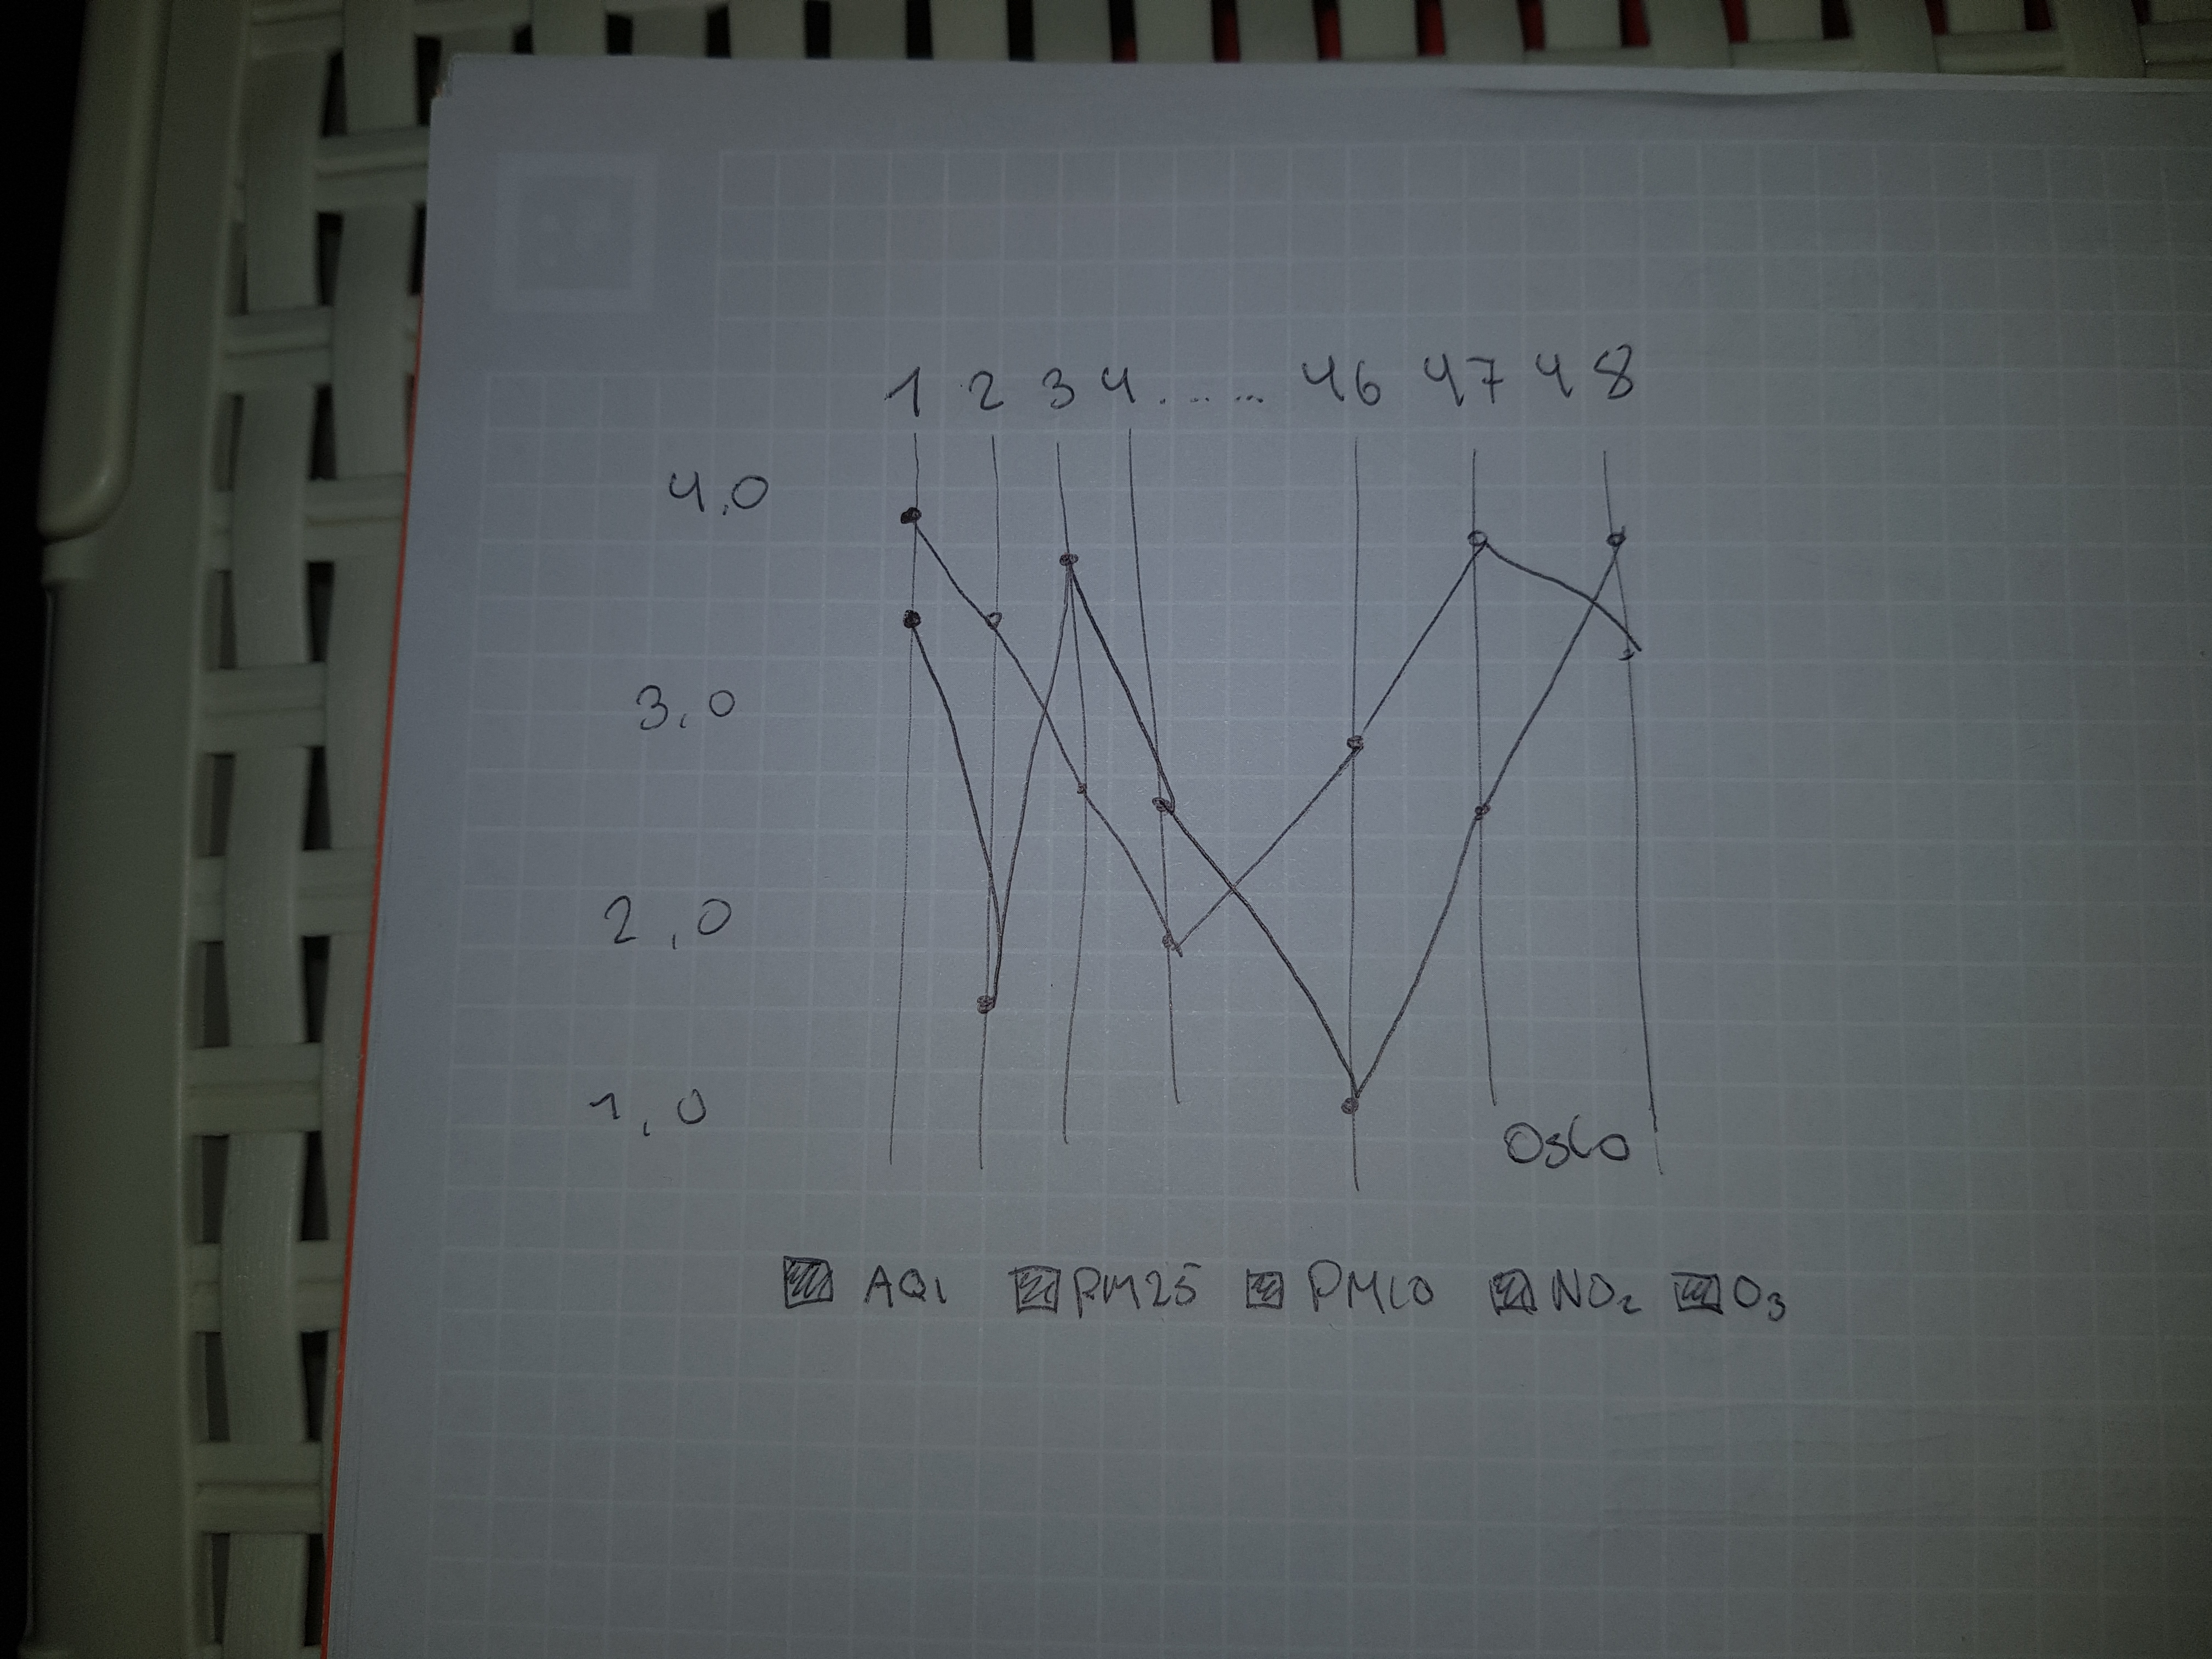 1 2 3 4 . .. ... 46 47 48
4,0
3,0
2,0
1,0
Oslo
AQI PM25 PM10 NO₂ O₃